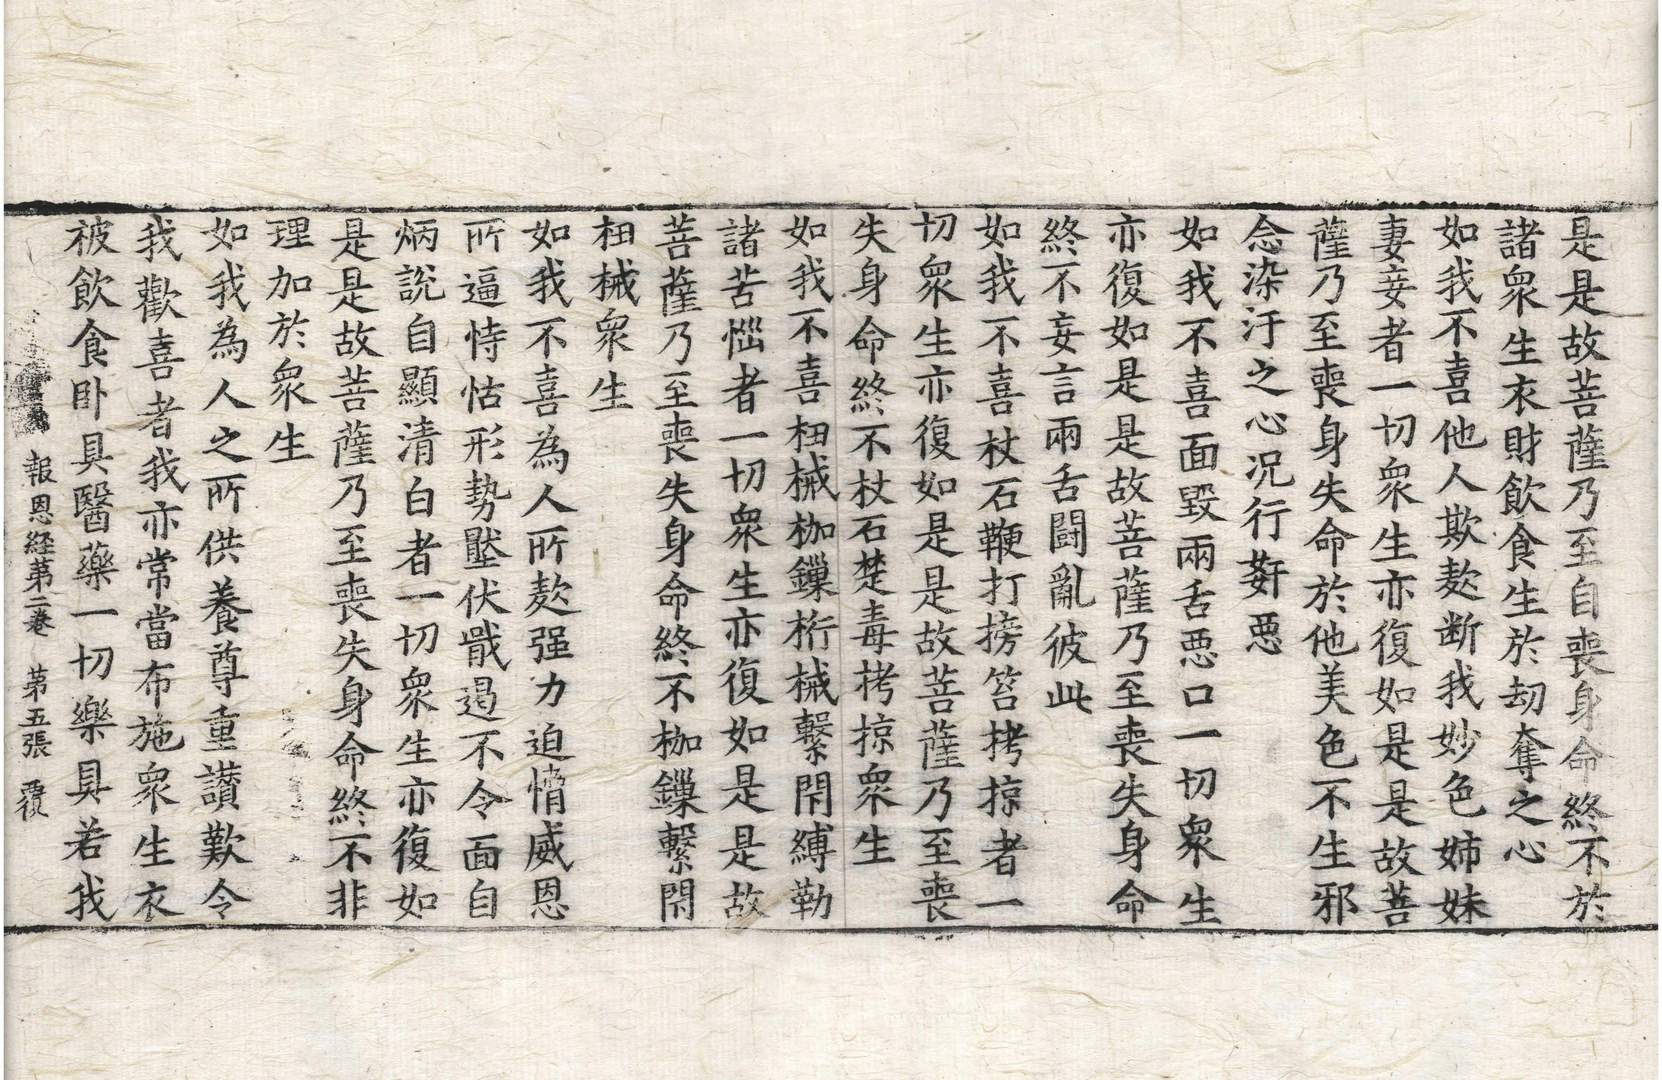 是是故菩薩乃至自喪身命終不於
諸衆生衣財飲食生於劫奪之心
如我不喜他人欺陵断我妙色姉妹
妻妾者一切衆生亦復如是是故菩
薩乃至喪身失命於他美色不生邪
念染汙之心況行姧惡
如我不喜面毀兩舌惡口一切衆生
亦復如是是故菩薩乃至喪失身命
終不妄言兩舌鬪亂彼此
如我不喜杖石鞭打搒笞拷掠者一
切衆生亦復如是是故菩薩乃至喪
失身命終不杖石楚毒拷掠衆生
如我不喜杻械枷鏁桁械繫閇縛勒
諸苦惱者一切衆生亦復如是是故
菩薩乃至喪失身命終不枷鏁繫閇
杻械衆生
如我不喜為人所欺强力迫愶威恩
所逼恃怙形勢壓伏戩遏不令面自
炳説自顯清白者一切衆生亦復如
是是故菩薩乃至喪失身命終不非
理加於衆生
如我為人之所供養尊重讃歎令
我歡喜者我亦常當布施衆生衣
被飲食卧具醫藥一切樂具若我
報恩経第二卷 第五張 覆